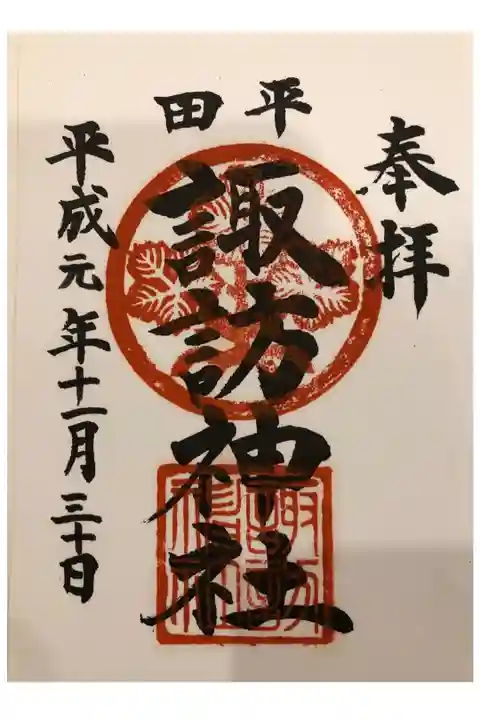 奉拝
平田
諏訪神社
諏訪
神社
平成元年十一月三十日